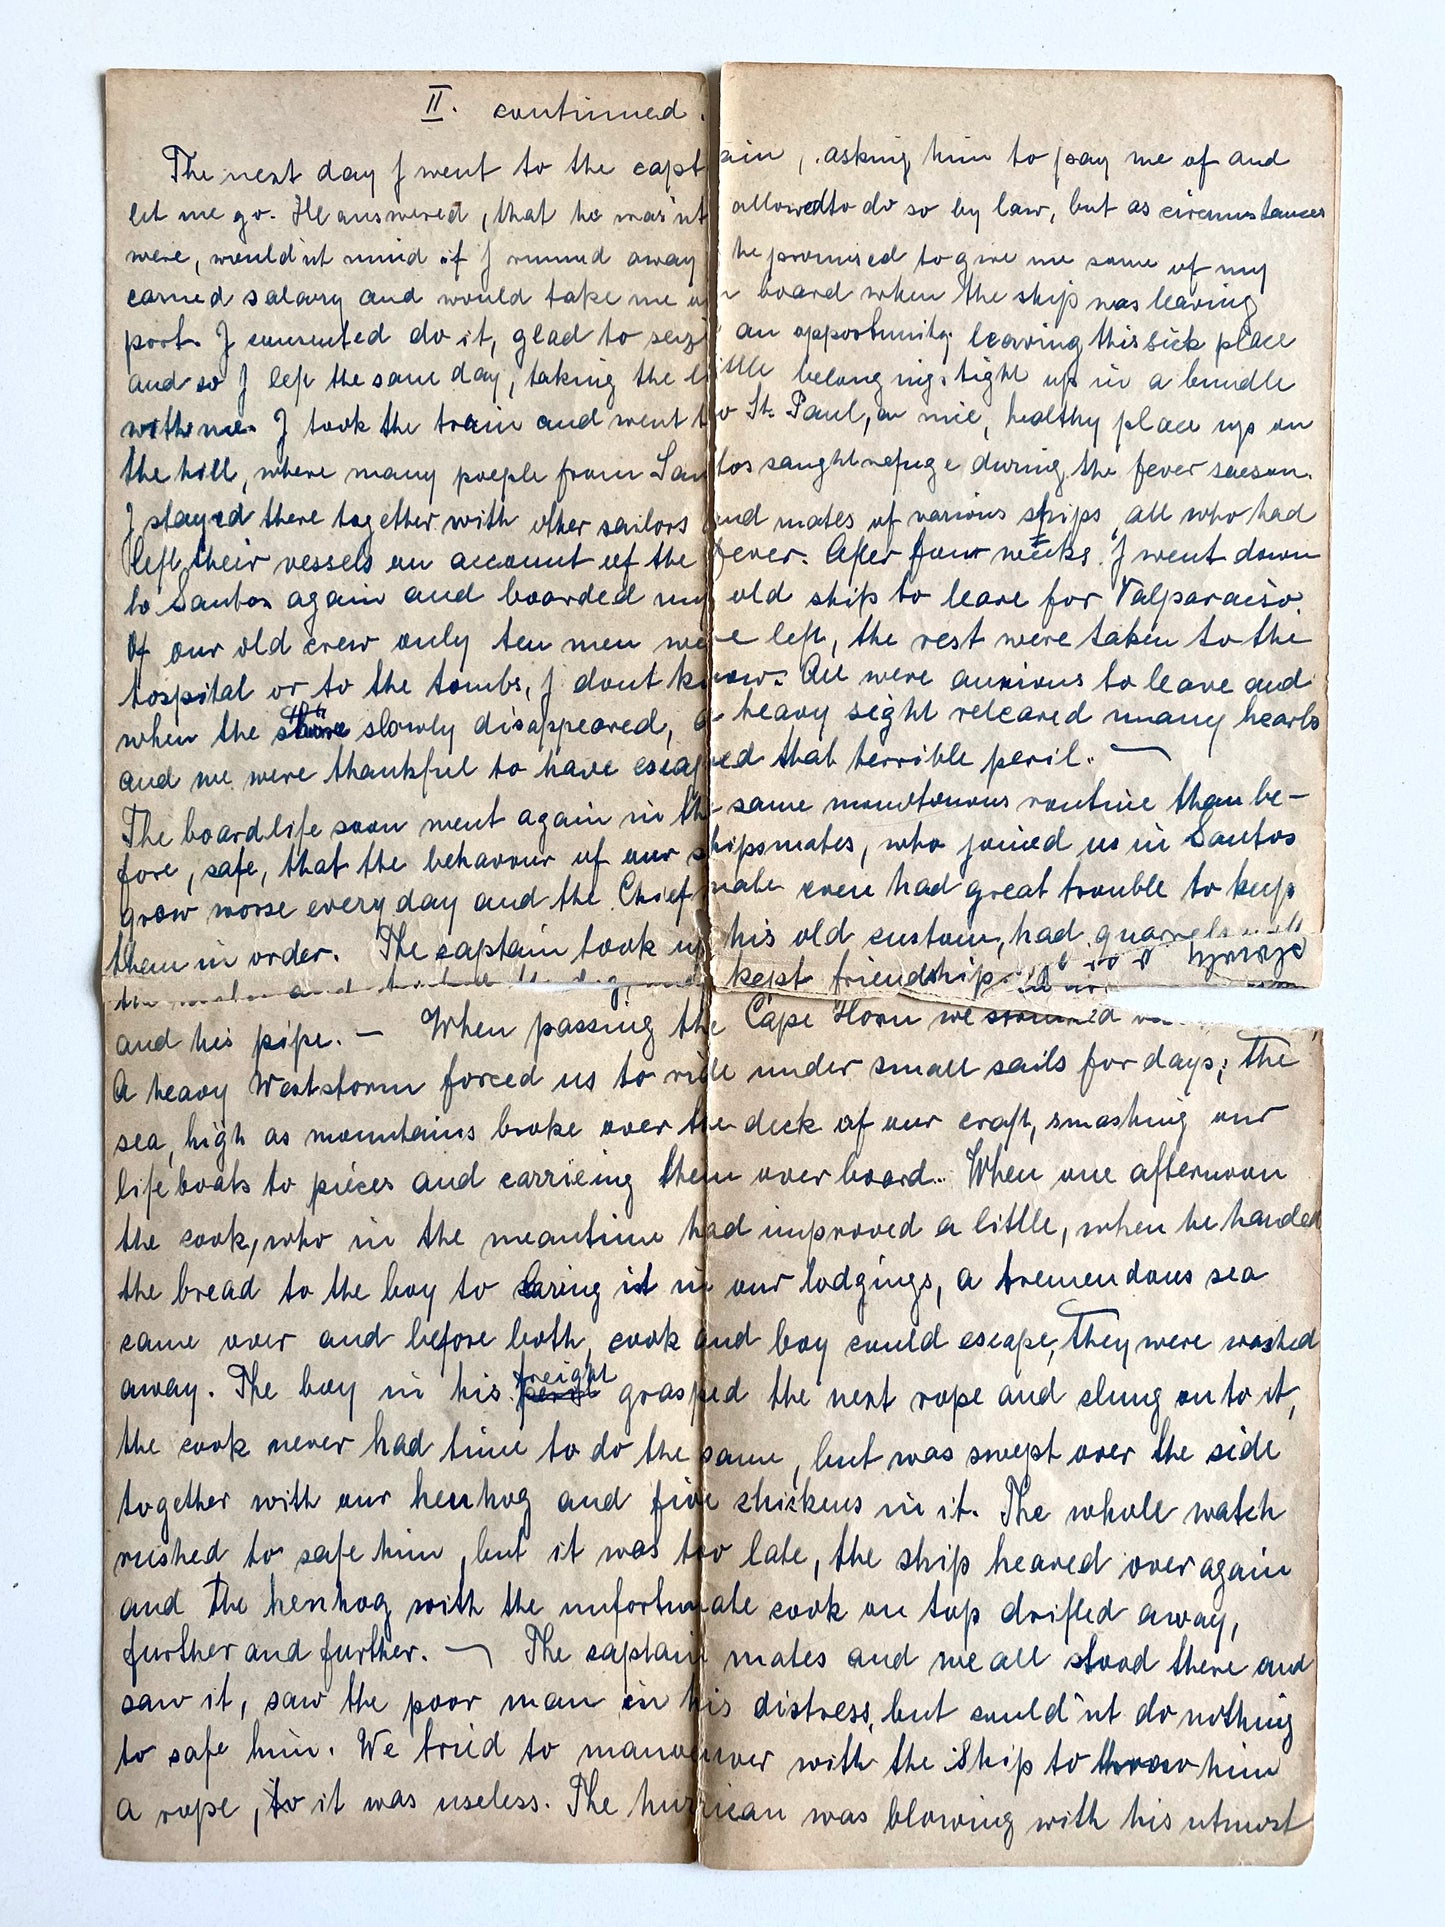 II. continued.
The next day I went to the captain, asking him to pay me of and
let me go. He answered, that he was'nt allowed to do so by law, but as circumstances
were, would'nt mind if I runned away he promised to give me some of my
earned salary and would take me on board when the ship was leaving
port. I consented do it, glad to seize an opportunity leaving this sick place
and so I left the same day, taking the little belonging, tight up in a bundle
with me. I took the train and went to St. Paul, a nice, healthy place up on
the hill, where many poeple from Santos saught refuge during the fever saeson.
I stayed there together with other sailors and mates of various ships, all who had
left their vessels on account of the fever. After four weeks I went down
to Santos again and boarded my old ship to leave for Valparaiso.
Of our old crew only ten men were left, the rest were taken to the
hospital or to the tombs, I dont know. All were anxious to leave and
when the shore slowly disappeared, a heavy sight releaved many hearts
and we were thankful to have escaped that terrible peril. —
The boardlife soon went again in the same monotonous routine than be-
fore, safe, that the behavour of our shipsmates, who joined us in Santos
grow worse every day and the Chief mate even had great trouble to keep
them in order. The captain took up his old custom, had quarrels with
the and kept friendship
and his pipe. — When passing the Cape Horn we
A heavy Weststorm forced us to ride under small sails for days; the
sea, high as mountains broke over the deck of our craft, smashing our
lifeboats to pieces and carrieing them over board. When one afternoon
the cook, who in the meantime had improved a little, when he handed
the bread to the boy to bring it in our lodgings, a tremendous sea
came over and before both, cook and boy could escape, they were washed
away. The boy in his freight grasped the next rope and clung on to it,
the cook never had time to do the same, but was swept over the side
together with our henhog and five chickens in it. The whole watch
rushed to safe him, but it was too late, the ship heaved over again
and the henhog with the unfortunate cook on top drifted away,
further and further. — The captain mates and we all stood there and
saw it, saw the poor man in his distress, but could'nt do nothing
to safe him. We tried to manoeuver with the Ship to throw him
a rope, to it was useless. The hurrican was blowing with his utmost